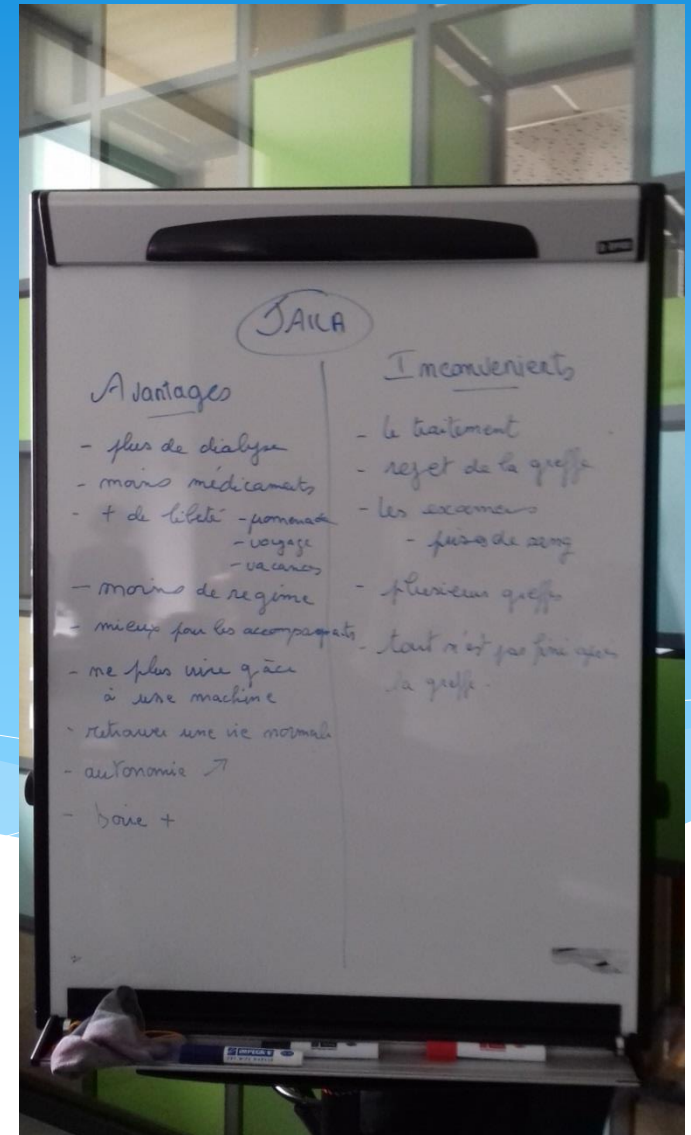 JAILA
Avantages
- plus de dialyse
- moins médicaments
- + de liberté - promenade
- voyage
- vacances
- moins de régime
- mieux pour les accompagnants
- ne plus vivre grâce
à une machine
- retrouver une vie normale
- autonomie ↗
- boire +
Inconvenients
- le traitement
- rejet de la greffe
- les examens
- prises de sang
- plusieurs greffes
- tout n'est pas fini après
la greffe.